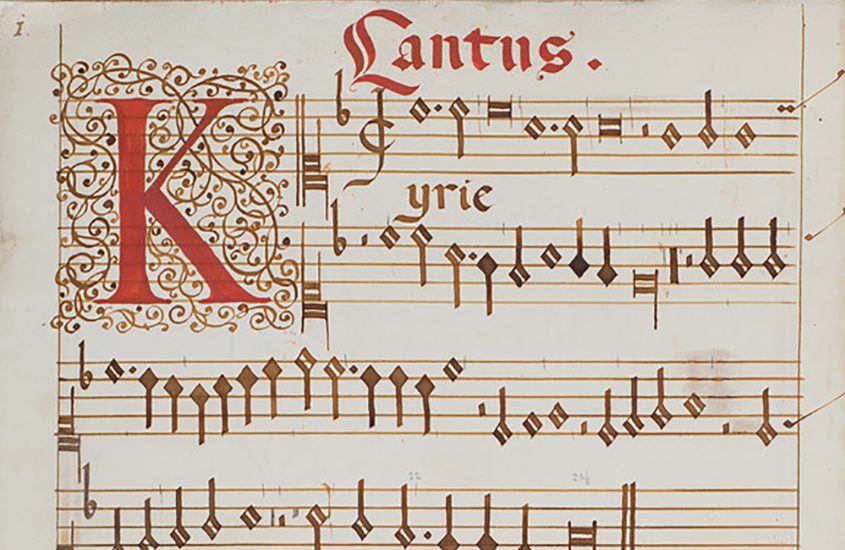 1.
Cantus.
Kyrie
22